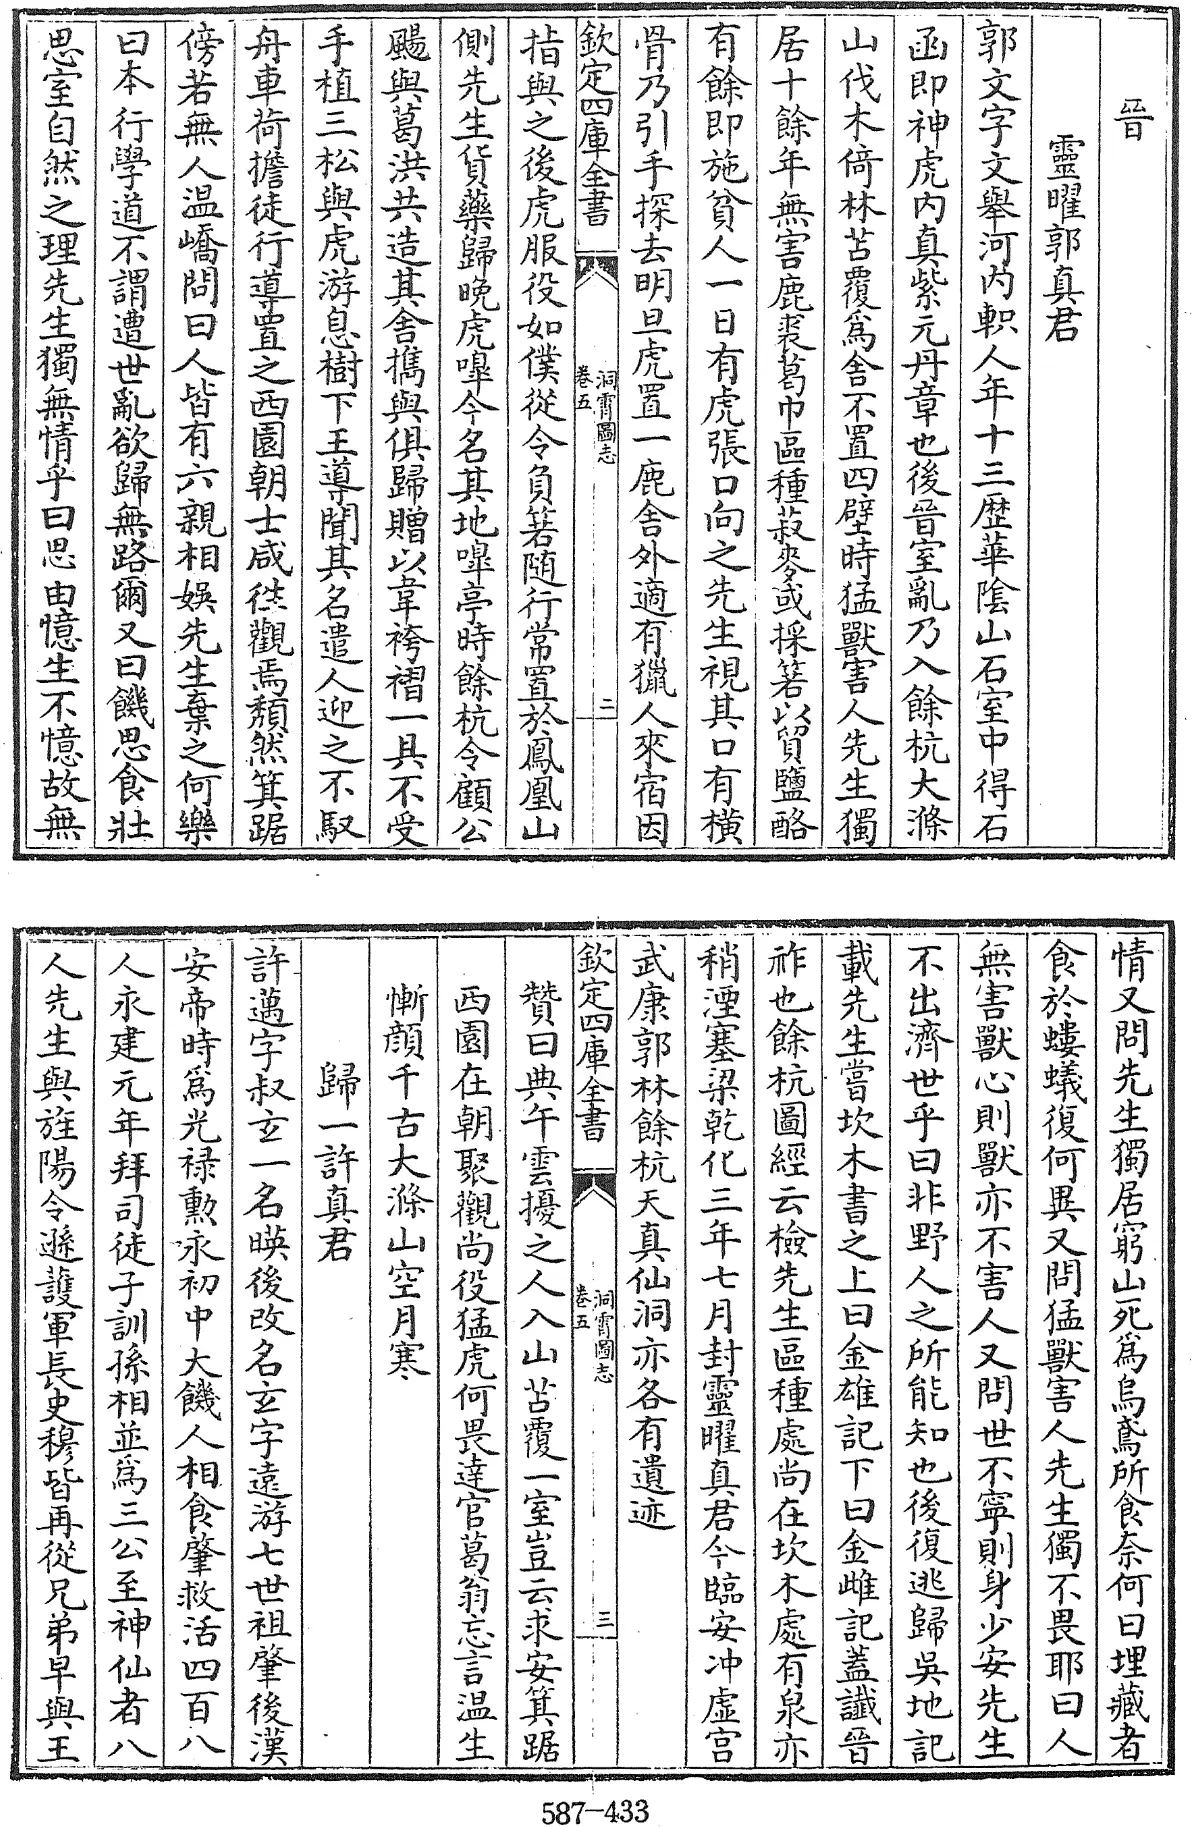 晉
靈曜郭真君
郭文字文舉河内軹人年十三歴華陰山石室中得石
函即神虎内真紫元丹章也後晉室亂乃入餘杭大滌
山伐木倚林苫覆爲舎不置四壁時猛獸害人先生獨
居十餘年無害鹿裘葛巾區種菽麥或採箬以貿鹽酪
有餘即施貧人一日有虎張口向之先生視其口有横
骨乃引手探去明旦虎置一鹿舎外適有獵人來宿因
欽定四庫全書
洞霄圖志
卷五
二
指與之後虎服役如僕從令負箬随行常置於鳳凰山
側先生貨藥歸晚虎嘷今名其地嘷亭時餘杭令顧公
颺與葛洪共造其舎㩦與俱歸贈以韋袴褶一具不受
手植三松與虎游息樹下王導聞其名遣人迎之不馭
舟車荷擔徒行導置之西園朝士咸徃觀焉頽然箕踞
傍若無人温嶠問曰人皆有六親相娛先生棄之何樂
曰本行學道不謂遭世亂欲歸無路爾又曰饑思食壯
思室自然之理先生獨無情乎曰思由憶生不憶故無
情又問先生獨居窮山死爲烏鳶所食奈何曰埋藏者
食於螻蟻復何異又問猛獸害人先生獨不畏耶曰人
無害獸心則獸亦不害人又問世不寧則身少安先生
不出濟世乎曰非野人之所能知也後復逃歸吳地記
載先生嘗坎木書之上曰金雄記下曰金雌記蓋讖晉
祚也餘杭圖經云檢先生區種處尚在坎木處有泉亦
稍湮塞梁乾化三年七月封靈曜真君今臨安冲虛宫
武康郭林餘杭天真仙洞亦各有遺迹
欽定四庫全書
洞霄圖志
卷五
三
贊曰典午雲擾之人入山苫覆一室豈云求安箕踞
西園在朝聚觀尚役猛虎何畏達官葛翁忘言温生
慚顔千古大滌山空月寒
歸一許真君
許邁字叔玄一名暎後改名玄字遠游七世祖肇後漢
安帝時爲光禄勲永初中大饑人相食肇救活四百八
人永建元年拜司徒子訓孫相並爲三公至神仙者八
人先生與旌陽令遜護軍長史穆皆再從兄弟早與王
587-433